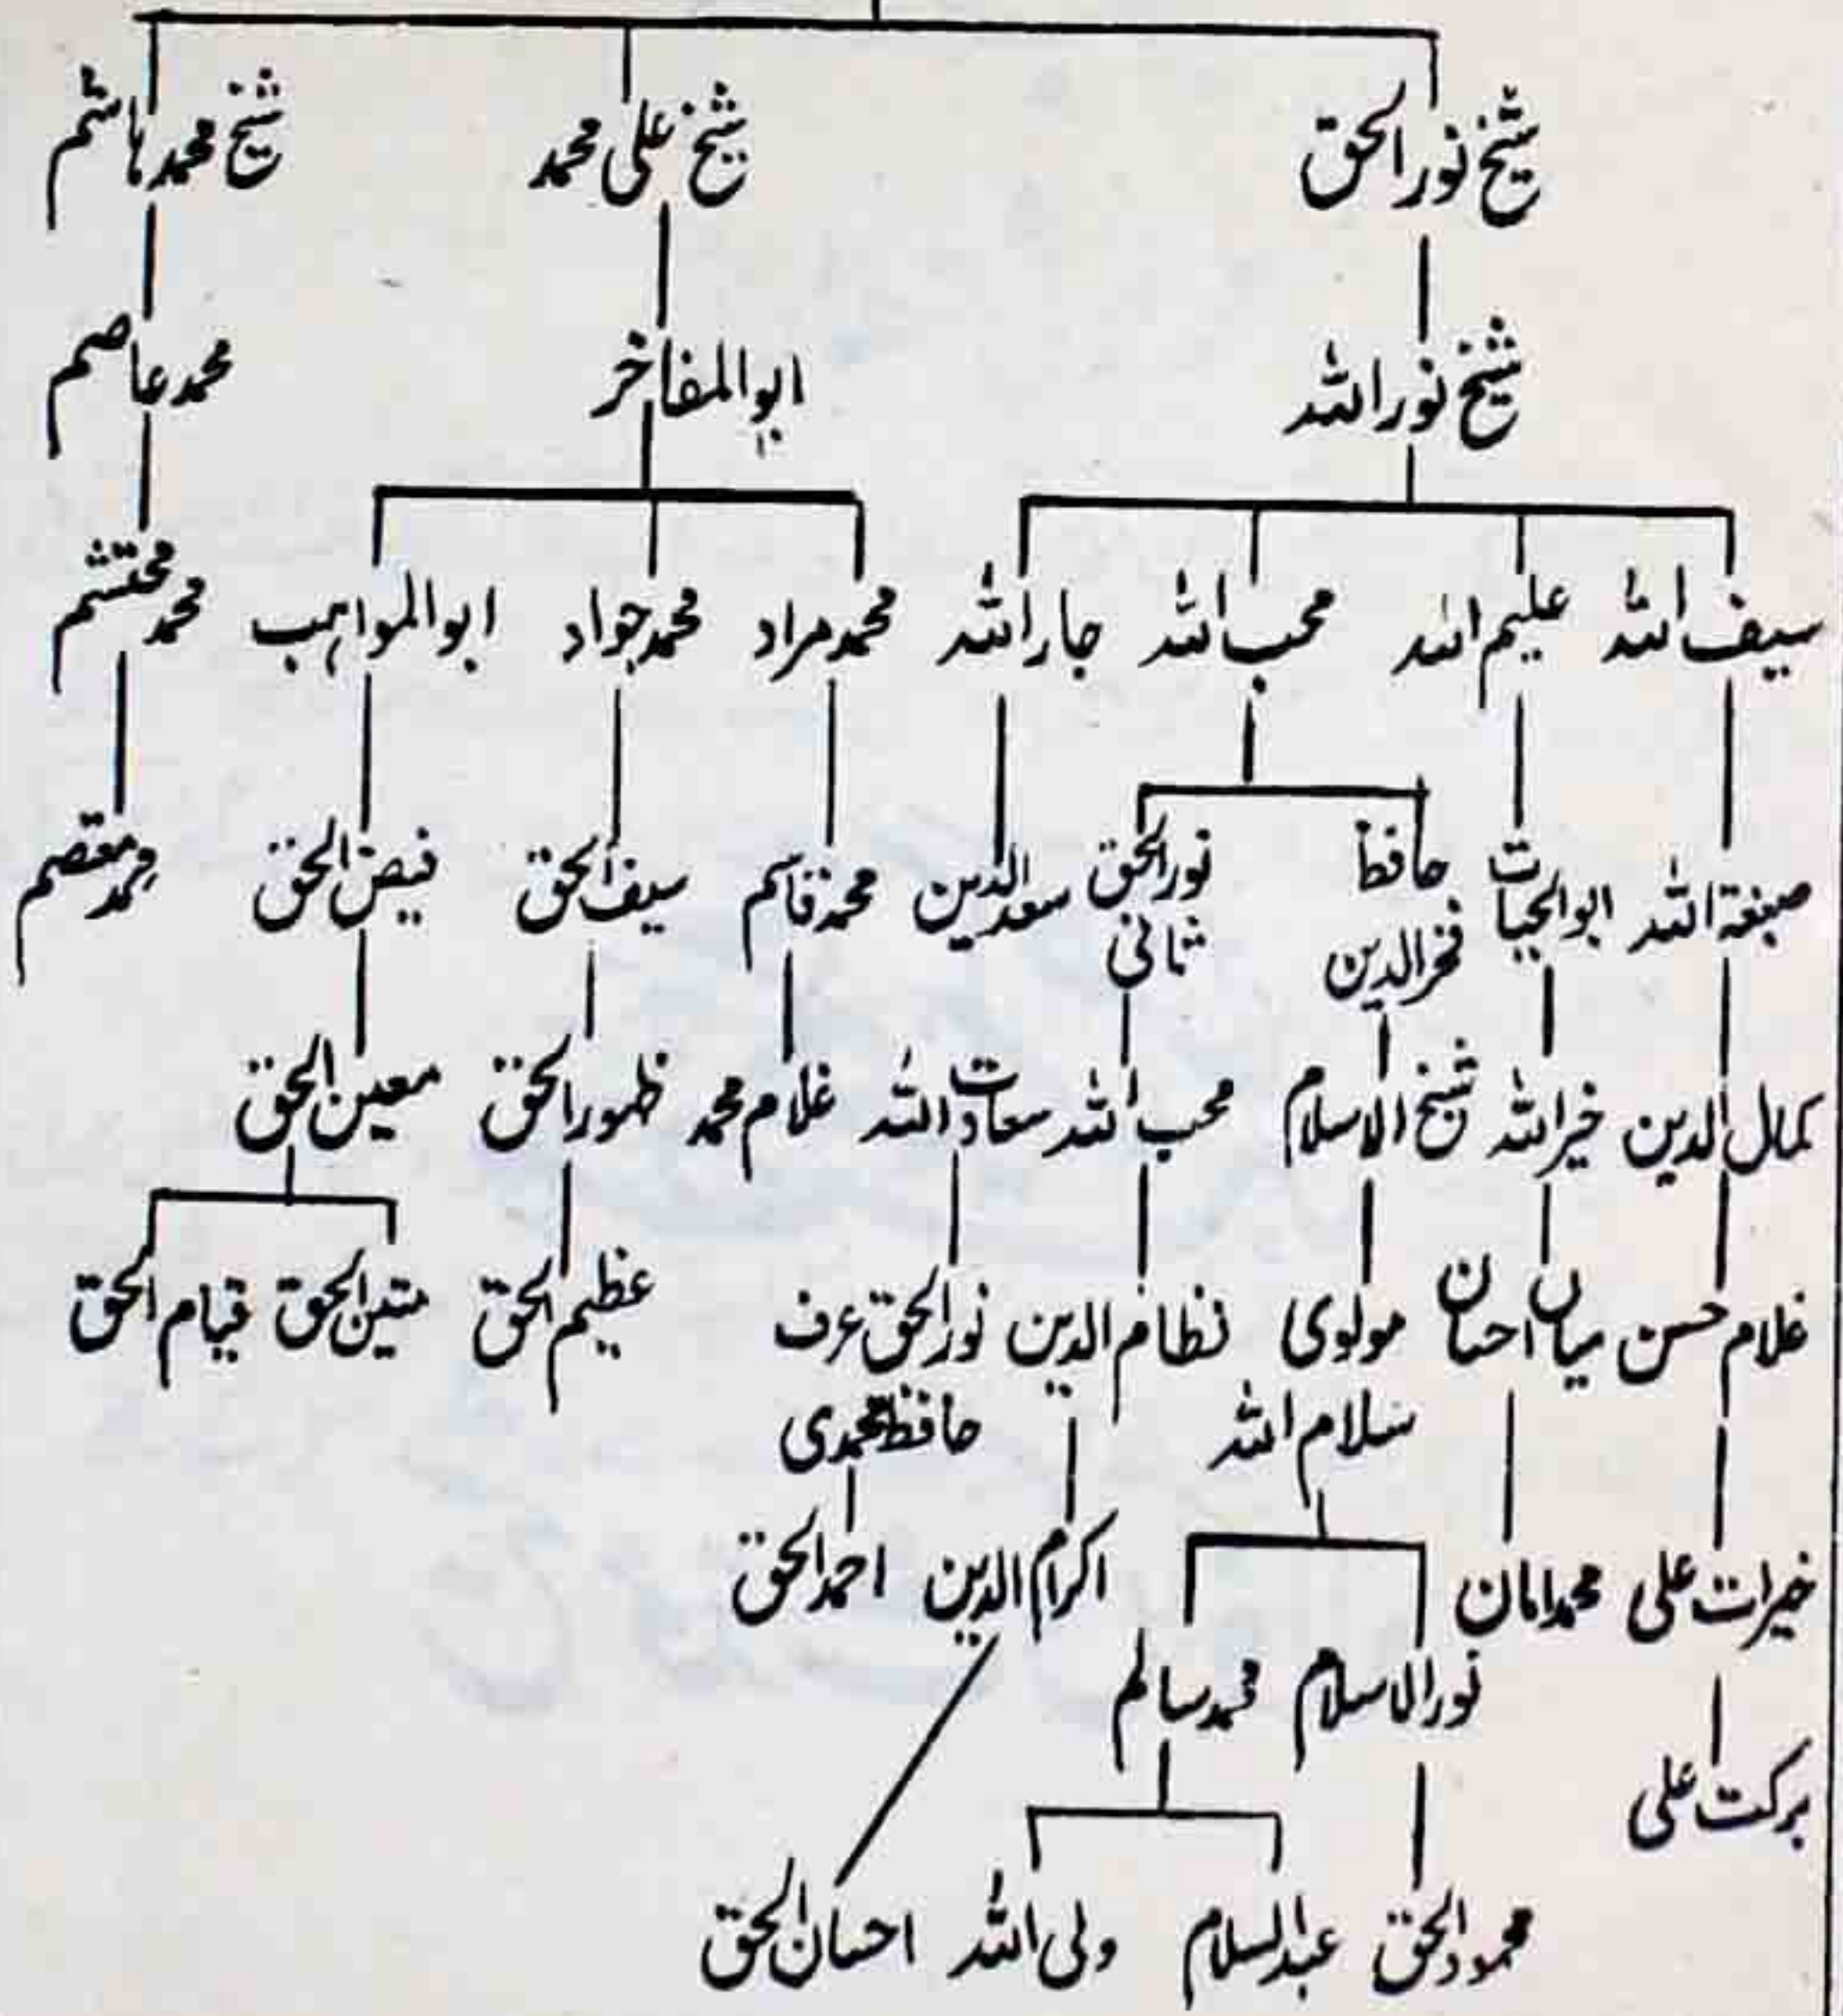 شیخ نورالحق شیخ علی محمد شیخ محمد ہاشم
شیخ نوراللہ ابوالمفاخر محمد عاصم
سیف اللہ علیم اللہ محب اللہ جاراللہ محمد مراد محمد جواد ابوالمواہب محمد محتشم
صبغۃ اللہ ابوالحیات حافظ نورالحق سعدالدین محمد قاسم سیف الحق فیض الحق محمد معتصم
فخرالدین ثانی
کمال الدین خیراللہ شیخ الاسلام محب اللہ سعادت اللہ غلام محمد ظہورالحق معین الحق
غلام حسن میاں احسان مولوی نظام الدین نورالحق عرف عظیم الحق متین الحق قیام الحق
سلام اللہ حافظ محمدی
خیرات علی محمد امان اکرام الدین احمدالحق
نورالاسلام محمد سالم
برکت علی
محمودالحق عبدالسلام ولی اللہ احسان الحق